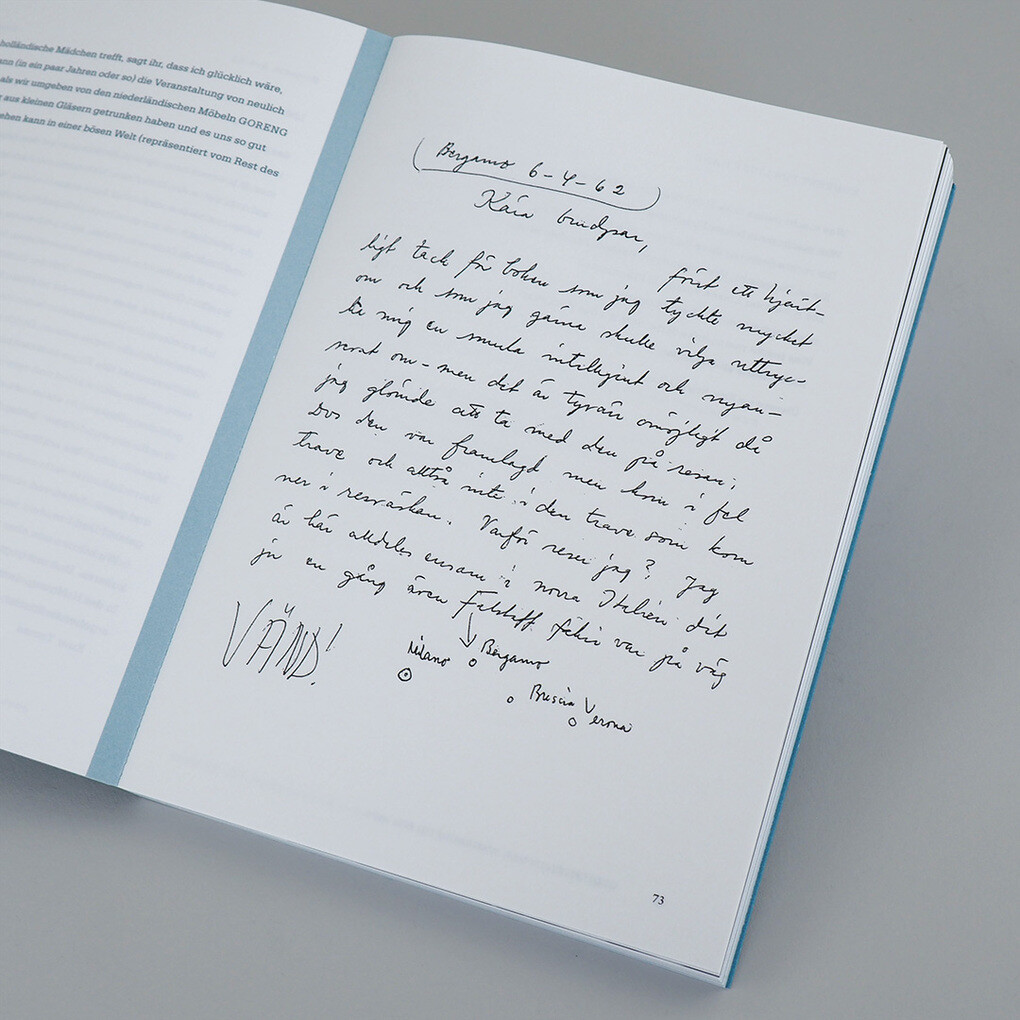 holländische Mädchen trefft, sagt ihr, dass ich glücklich wäre,
(in ein paar Jahren oder so) die Veranstaltung von neulich
als wir umgeben von den niederländischen Möbeln GORENG
aus kleinen Gläsern getrunken haben und es uns so gut
kann in einer bösen Welt (repräsentiert vom Rest des
Bergamo 6-4-62
Kära
först ett hjärt-
ligt tack för boken som jag tyckte mycket
om och som jag gärna skulle vilja uttryc-
ka mig en smula intelligent och nyan-
serat om – men det är tyvärr omöjligt då
jag glömde att ta med den på resan;
dvs den var framlagd men kom i fel
trave och alltså inte i den trave som kom
ner i resväskan. Varför reser jag? Jag
är här alldeles ensam i norra Italien dit
ju en gång även Falstaff, fakir var på väg
VÄND!
Milano
Bergamo
Brescia
Verona
73